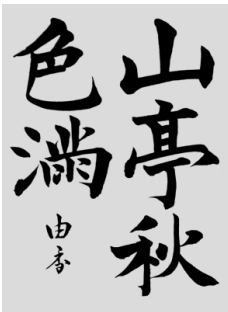 山亭秋
色満
由香